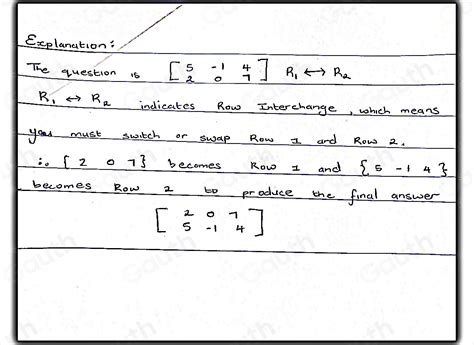 Explanation:
The question is [ 5 -1 4 ] R₁ ↔ R₂
[ 2 0 7 ]
R₁ ↔ R₂ indicates Row Interchange, which means
you must switch or swap Row 1 and Row 2.
∴ { 2 0 7} becomes Row 1 and { 5 -1 4 }
becomes Row 2 to produce the final answer
[ 2 0 7 ]
[ 5 -1 4 ]
Gauth